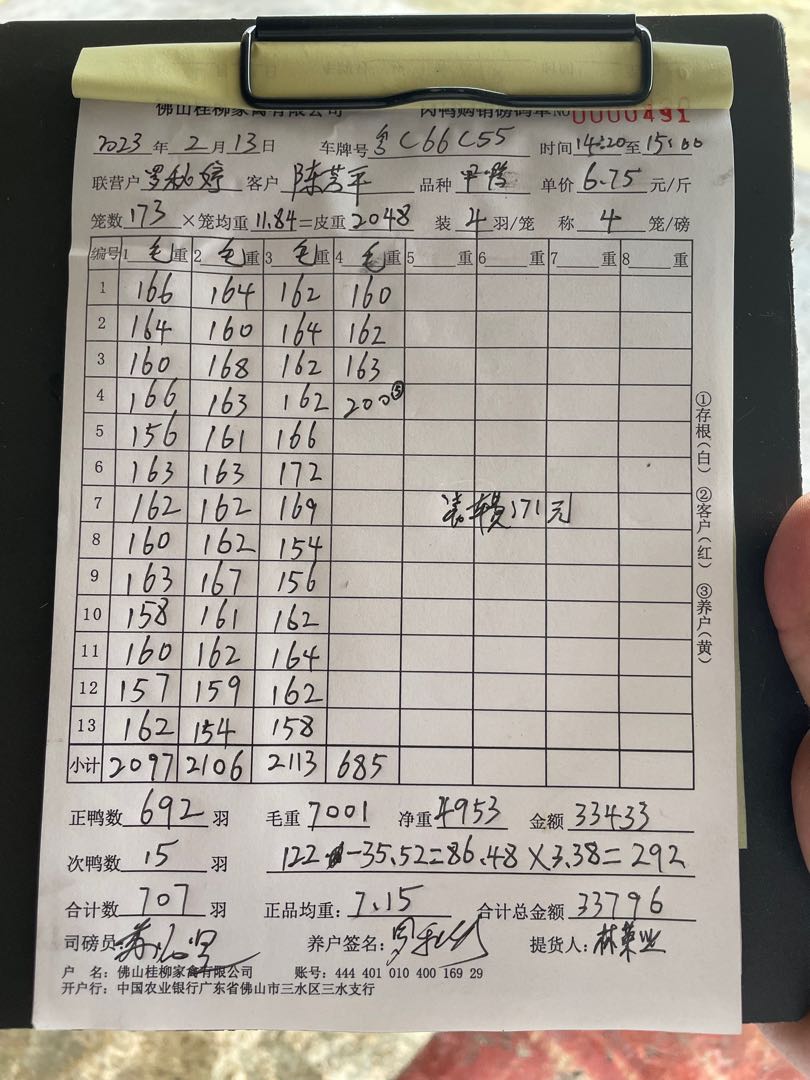 佛山桂柳家禽有限公司 肉鸭购销磅码单 NO 0000491
2023 年 2 月 13 日 车牌号 粤C66C55 时间 14:20 至 15:00
联营户 罗秋婷 客户 品种 单价 6.75 元/斤
笼数 173 ×笼均重 11.84 =皮重 2048 装 4 羽/笼 称 4 笼/磅
编号 1 毛 重 2 毛 重 3 毛 重 4 毛 重 5 重 6 重 7 重 8 重
1 166 164 162 160
2 164 160 164 162
3 160 168 162 163
4 166 163 162 200⑤
5 156 161 166
6 163 163 172
7 162 162 169 171元
8 160 162 154
9 163 167 156
10 158 161 162
11 160 162 164
12 157 159 162
13 162 154 158
小计 2097 2106 2113 685
正鸭数 692 羽 毛重 7001 净重 4953 金额 33433
次鸭数 15 羽 122 -35.52=86.48×3.38=292
合计数 707 羽 正品均重: 7.15 合计总金额 33796
司磅员: 养户签名: 提货人: 林荣业
户 名: 佛山桂柳家禽有限公司 账号: 444 401 010 400 169 29
开户行: 中国农业银行广东省佛山市三水区三水支行
①存根(白) ②客户(红) ③养户(黄)